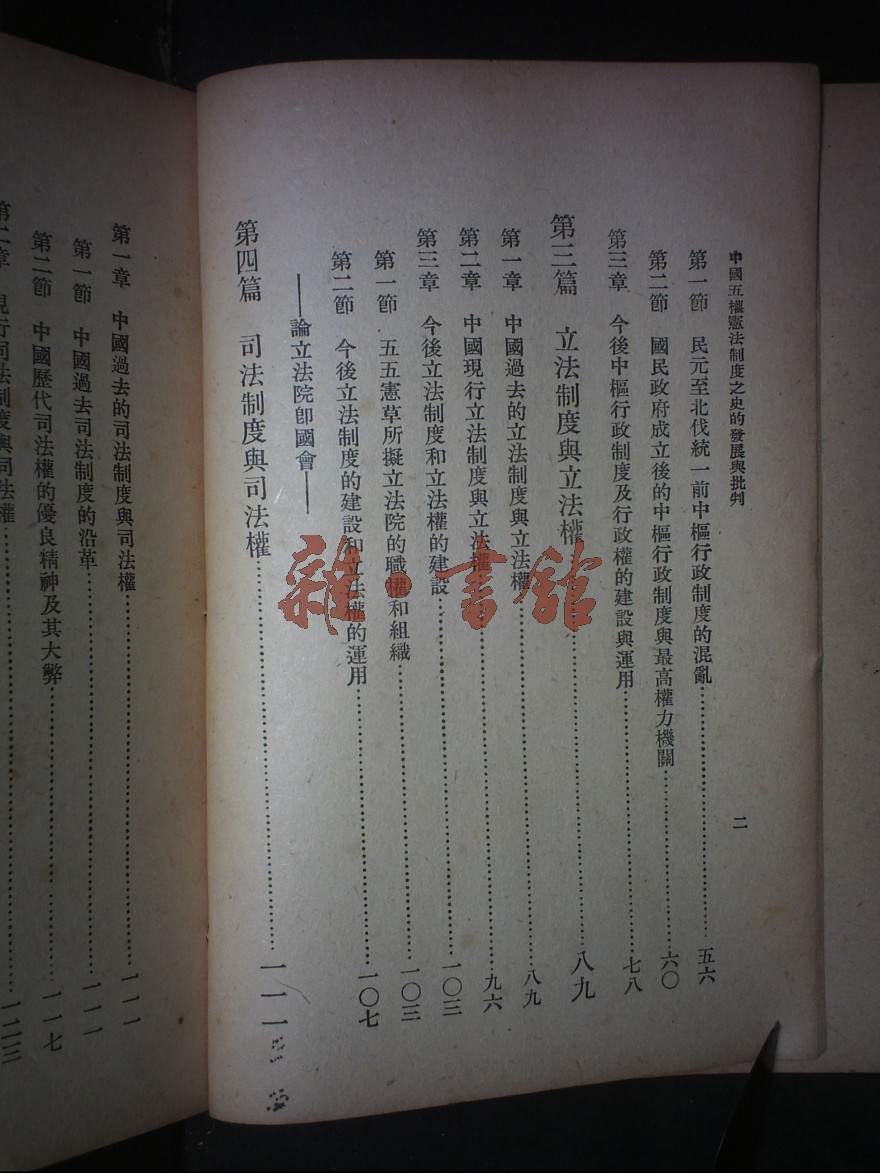 中國五權憲法制度之史的發展與批判
二
第一節 民元至北伐統一前中樞行政制度的混亂……五六
第二節 國民政府成立後的中樞行政制度與最高權力機關……六〇
第三章 今後中樞行政制度及行政權的建設與運用……七八
第三篇 立法制度與立法權……八九
第一章 中國過去的立法制度與立法權……八九
第二章 中國現行立法制度與立法權……九六
第三章 今後立法制度和立法權的建設……一〇三
第一節 五五憲草所擬立法院的職權和組織……一〇三
第二節 今後立法制度的建設和立法權的運用……一〇七
——論立法院卽國會——
第四篇 司法制度與司法權……一一一
第一章 中國過去的司法制度與司法權……一一一
第一節 中國過去司法制度的沿革……一一一
第二節 中國歷代司法權的優良精神及其大弊……一一七
第二章 現行司法制度與司法權……一二三
雜·書館